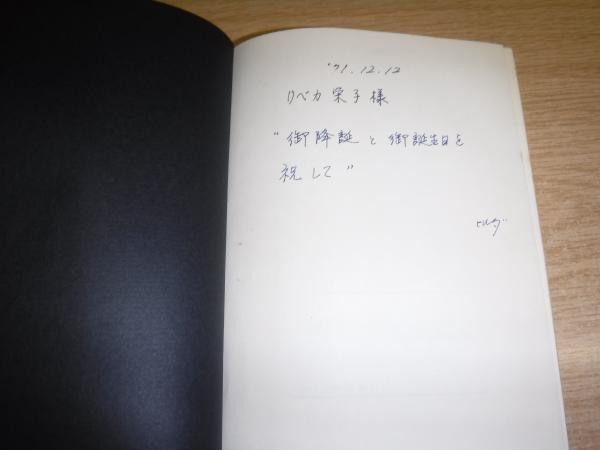 '71.12.12
リベカ栄子様
“御降誕と御誕生日を
祝して”
ヒルダ